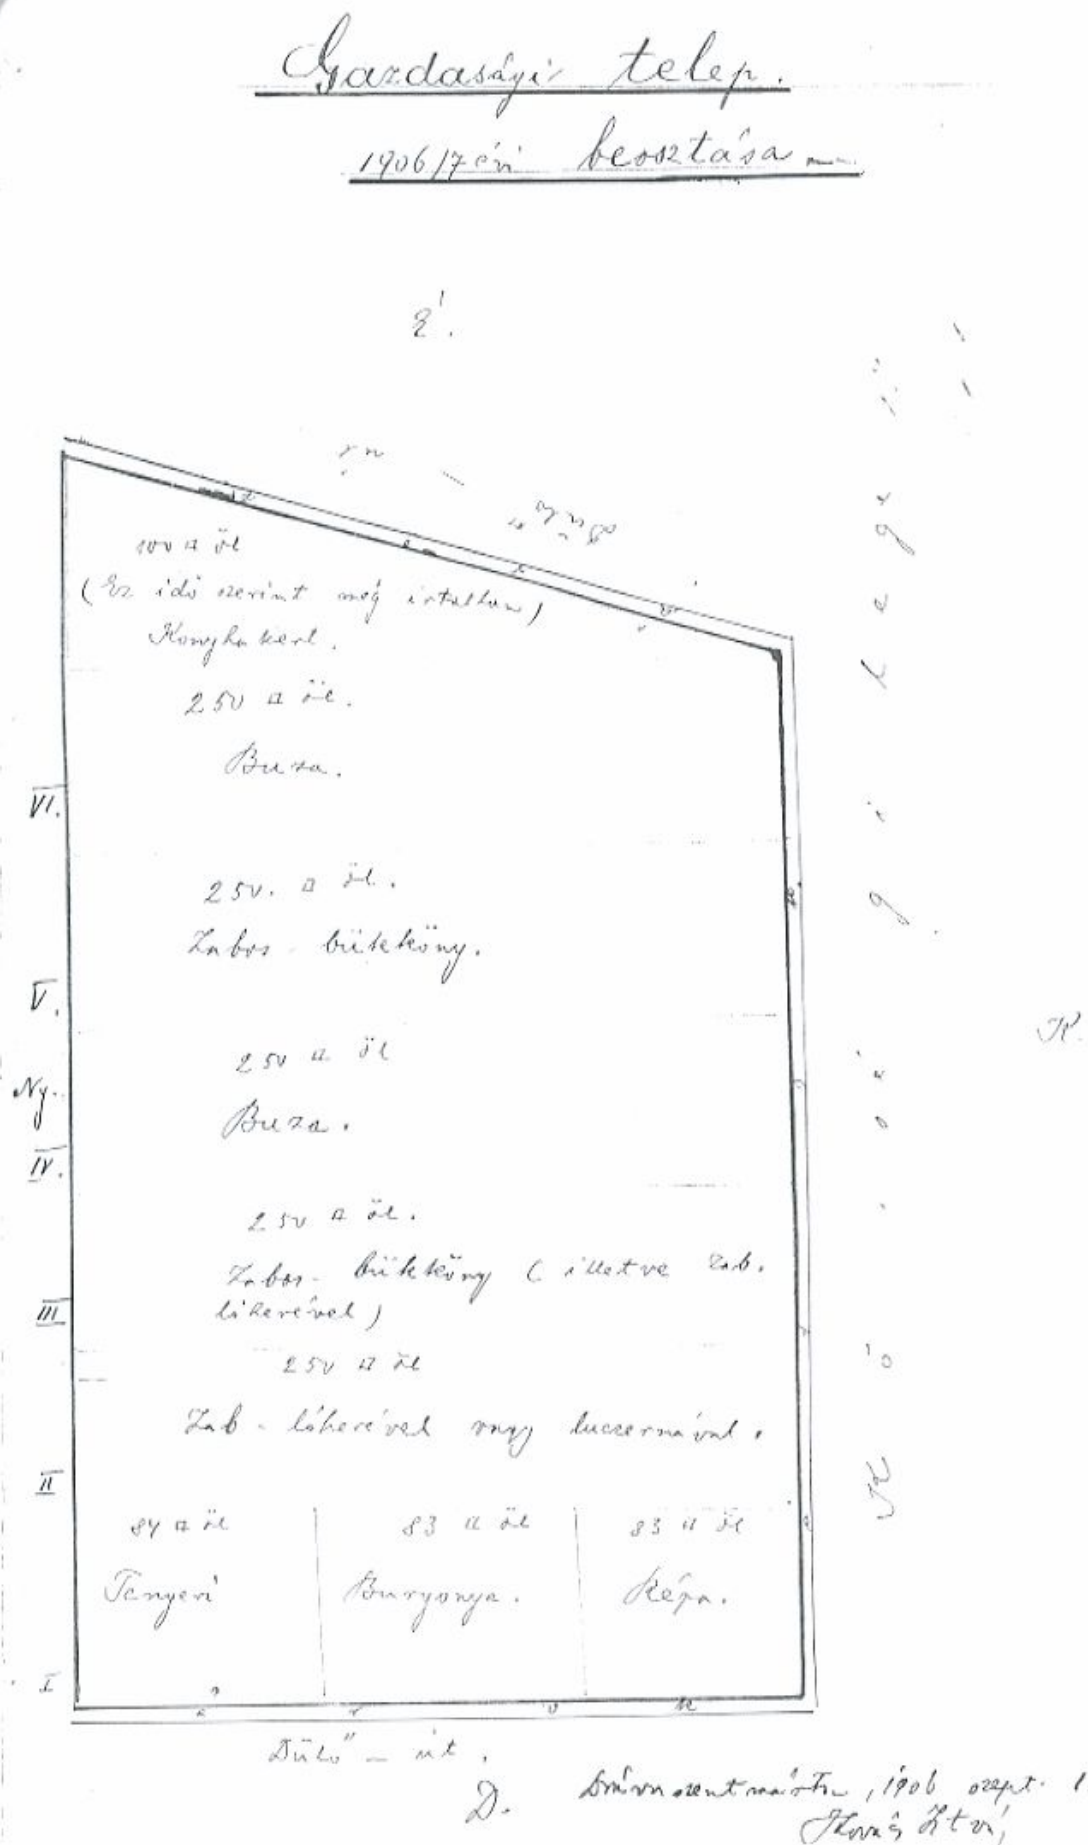 Gazdasági telep.
1906/7 évi beosztása
É.
Dülő - út
100 □ öl
(Ez idő szerint még irtatlan)
Konyha kert.
250 □ öl.
Buza.
VI.
250. □ öl.
Zabos - bükköny.
V.
250 □ öl
Ny.
Buza.
IV.
250 □ öl.
Zabos - bükköny ( illetve zab.
lóherével)
III
250 □ öl
Zab - lóherével vagy luczernával.
II
84 □ öl 83 □ öl 83 □ öl
Tengeri Burgonya. Répa.
I
árok
K.
Dülő - út.
D.
Drávaszentmárton, 1906 szept. 1
Kovács